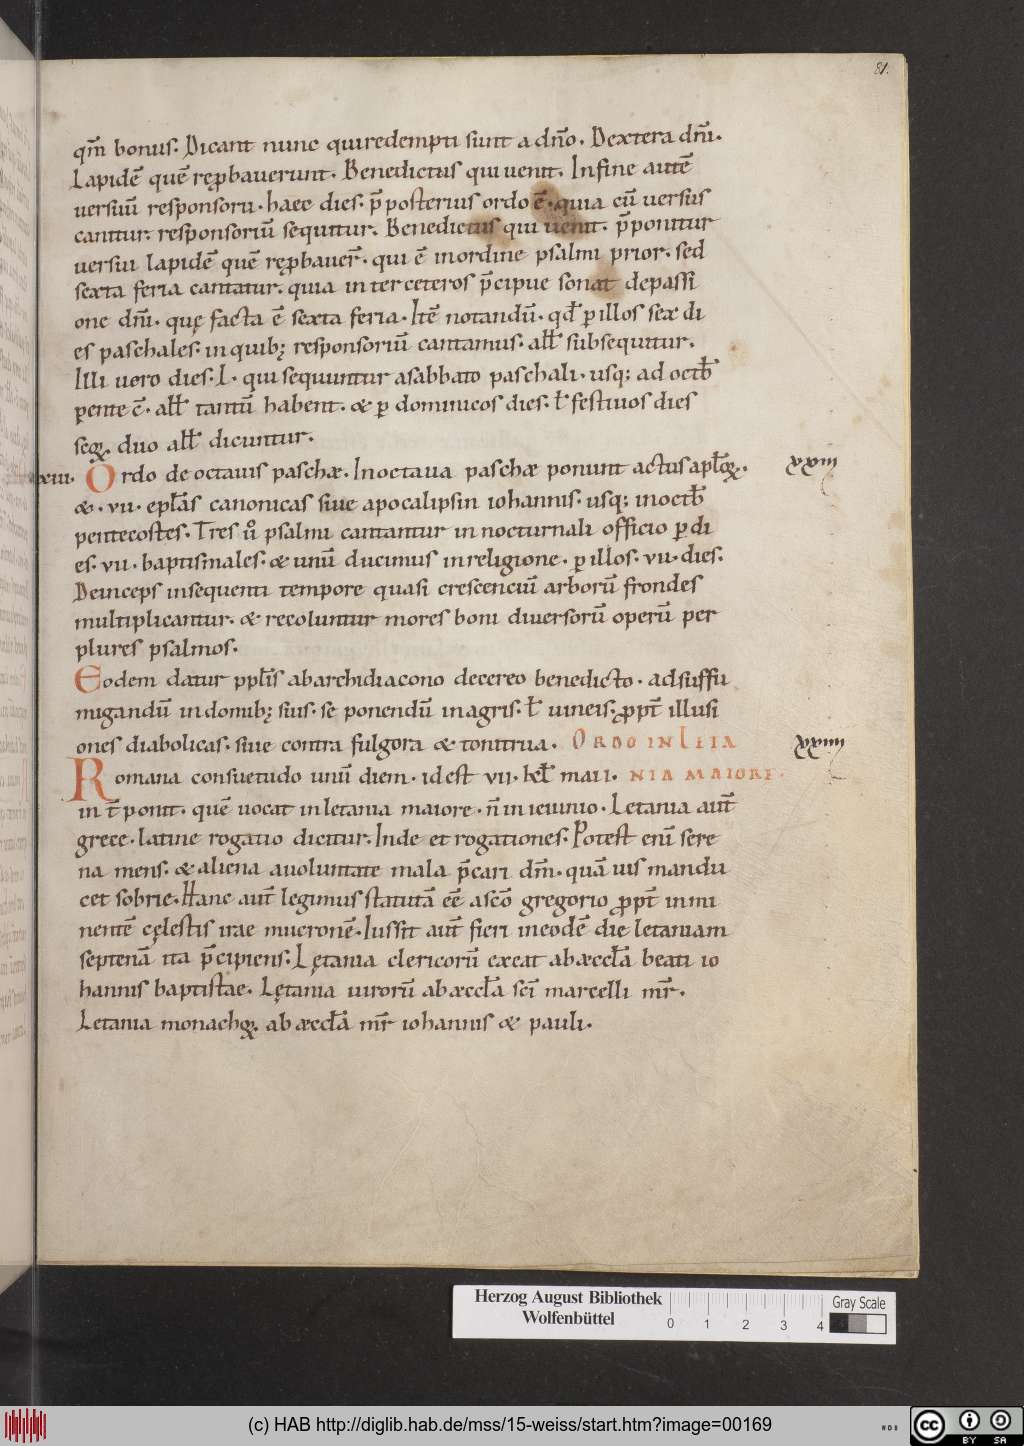 81.
qm̄ bonus. Dicant nunc qui redempti sunt a dn̄o. Dextera dn̄i.
Lapidē quē rep̱bauerunt. Benedictus qui uenit. In fine autē
uersuū responsorii. haec dies. p̄ posterius ordo ē. quia cū uersus
canitur. responsoriū sequitur. Benedictus qui uenit. p̄ponitur
uersui lapidē quē rep̱bauer̄. qui ē in ordine psalmi prior. sed
sexta feria cantatur. quia inter ceteros p̄cipue sonat de passi
one dn̄i. quę facta ē sexta feria. Itē notandū. qđ ꝑ illos sex di
es paschales. in quibꝫ responsoriū cantamus. all̄ subsequitur.
Illi uero dies. L. qui sequuntur a sabbato paschali. usqꝫ ad octb̄
pente c̄. all̄ tantū habent. & ꝑ dominicos dies. ł festiuos dies
seqꝝ duo all̄ dicuntur.
xxiii. Ordo de octauis paschæ. In octaua paschæ ponunt actus apl̄oꝝ. xxiii
&. vii. epl̄as canonicas siue apocalipsin iohannis. usqꝫ in octb̄
pentecostes. Tres ů psalmi cantantur in nocturnali officio ꝑ di
es. vii. baptismales. & unū ducimus in religione. ꝑ illos. vii. dies.
Deinceps in sequenti tempore quasi crescenciū arborū frondes
multiplicantur. & recoluntur mores boni diuersorū operū per
plures psalmos.
Eodem datur ppl̄is ab archidiacono decereo benedicto. ad suffu
migandū in domibꝫ suis. seponendū in agris. ł uineis. ꝓpt̄ illusi
ones diabolicas. siue contra fulgora & tonitrua. ORDO IN LETA xxiiii
Romana consuetudo unū diem. id est vii. kl̄ maii. NIA MAIORE.
int̄ponit. quē uocat in letania maiore. n̄ in ieiunio. Letania aut̄
grece. latine rogatio dicitur. Inde et rogationes. Potest enī sere
na mens. & aliena a uoluntate mala p̄cari dm̄. quā uis mandu
cet sobrie. Hanc aut̄ legimus statutā eē a sc̄o gregorio ꝓpt̄ inmi
nentē cęlestis irae mucronē. Iussit aut̄ fieri in eodē die letaniam
septenā ita p̄cipiens. Lętania clericorū exeat ab æccl̄a beati io
hannis baptistae. Lętania uirorū ab æccl̄a sc̄i marcelli mr̄.
Letania monachoꝝ ab æccl̄a mr̄ iohannis & pauli.
Herzog August Bibliothek
Wolfenbüttel
0 1 2 3 4
Gray Scale
(c) HAB http://diglib.hab.de/mss/15-weiss/start.htm?image=00169
WDB
cc BY SA